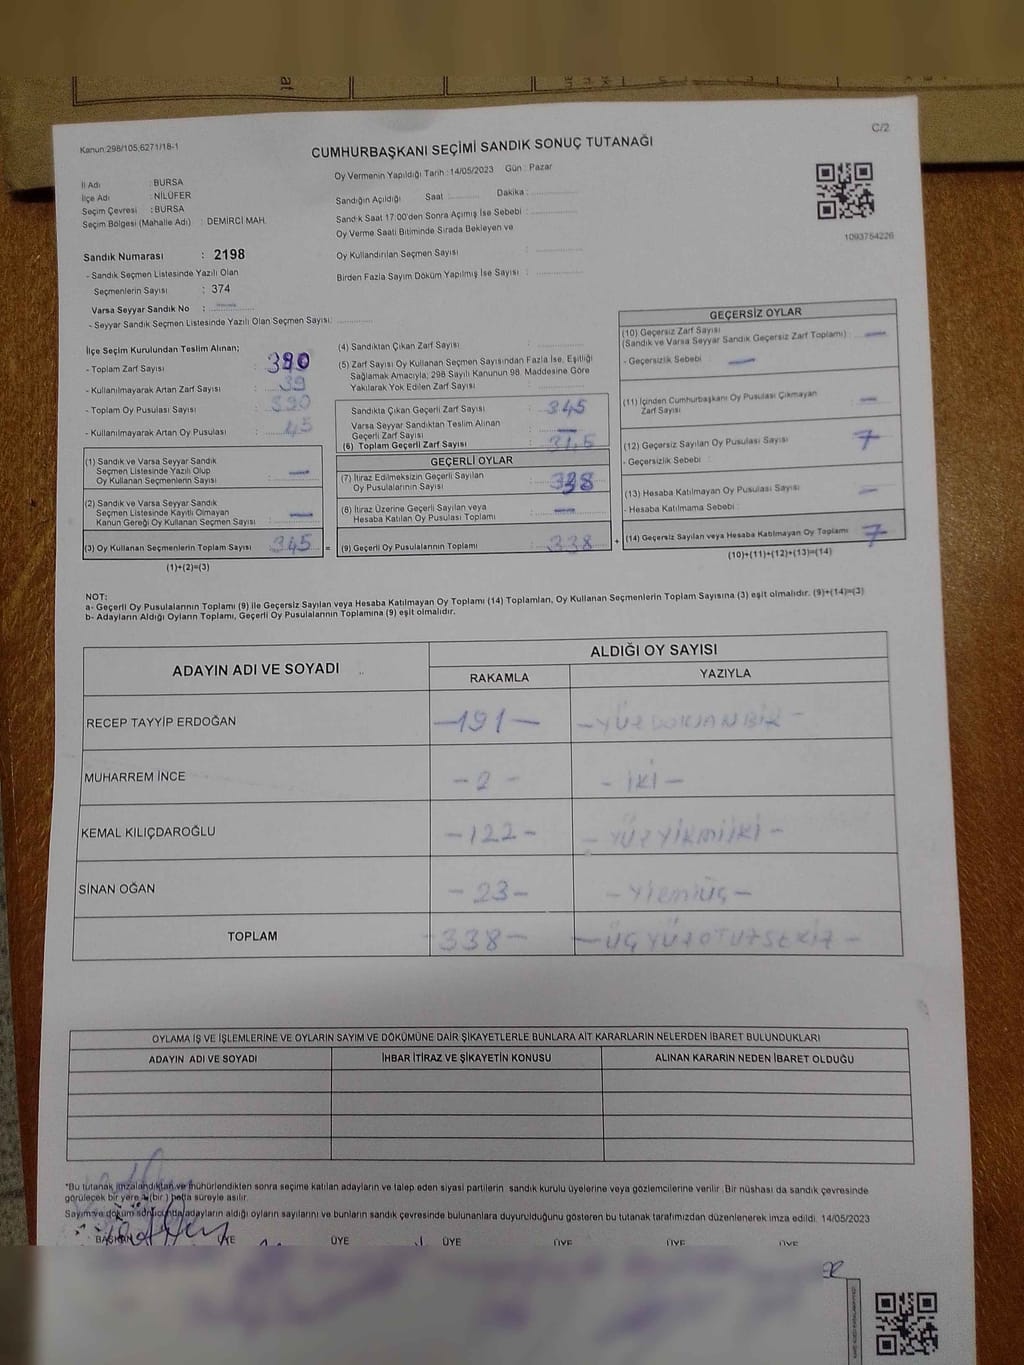 C/2
Kanun:298/105,6271/18-1
CUMHURBAŞKANI SEÇİMİ SANDIK SONUÇ TUTANAĞI
İl Adı : BURSA
İlçe Adı : NİLÜFER
Seçim Çevresi : BURSA
Seçim Bölgesi (Mahalle Adı) : DEMİRCİ MAH.
Sandık Numarası : 2198
- Sandık Seçmen Listesinde Yazılı Olan
Seçmenlerin Sayısı : 374
Varsa Seyyar Sandık No : —
- Seyyar Sandık Seçmen Listesinde Yazılı Olan Seçmen Sayısı:
Oy Vermenin Yapıldığı Tarih : 14/05/2023 Gün : Pazar
Sandığın Açıldığı Saat : Dakika :
Sandık Saat 17:00'den Sonra Açımış İse Sebebi :
Oy Verme Saati Bitiminde Sırada Bekleyen ve
Oy Kullandırılan Seçmen Sayısı :
Birden Fazla Sayım Döküm Yapılmış İse Sayısı :
1093754226
İlçe Seçim Kurulundan Teslim Alınan;
- Toplam Zarf Sayısı : 380
- Kullanılmayarak Artan Zarf Sayısı : 39
- Toplam Oy Pusulası Sayısı : 390
- Kullanılmayarak Artan Oy Pusulası : 45
(1) Sandık ve Varsa Seyyar Sandık
Seçmen Listesinde Yazılı Olup
Oy Kullanan Seçmenlerin Sayısı : —
(2) Sandık ve Varsa Seyyar Sandık
Seçmen Listesinde Kayıtlı Olmayan
Kanun Gereği Oy Kullanan Seçmen Sayısı : —
(3) Oy Kullanan Seçmenlerin Toplam Sayısı : 345
(1)+(2)=(3)
(4) Sandıktan Çıkan Zarf Sayısı :
(5) Zarf Sayısı Oy Kullanan Seçmen Sayısından Fazla İse, Eşitliği
Sağlamak Amacıyla; 298 Sayılı Kanunun 98. Maddesine Göre
Yakılarak Yok Edilen Zarf Sayısı :
Sandıkta Çıkan Geçerli Zarf Sayısı : 345
Varsa Seyyar Sandıktan Teslim Alınan
Geçerli Zarf Sayısı : —
(6) Toplam Geçerli Zarf Sayısı : 345
GEÇERLİ OYLAR
(7) İtiraz Edilmeksizin Geçerli Sayılan
Oy Pusulalarının Sayısı : 338
(8) İtiraz Üzerine Geçerli Sayılan veya
Hesaba Katılan Oy Pusulası Toplamı : —
(9) Geçerli Oy Pusulalarının Toplamı : 338
GEÇERSİZ OYLAR
(10) Geçersiz Zarf Sayısı
(Sandık ve Varsa Seyyar Sandık Geçersiz Zarf Toplamı) : —
- Geçersizlik Sebebi : —
(11) İçinden Cumhurbaşkanı Oy Pusulası Çıkmayan
Zarf Sayısı : —
(12) Geçersiz Sayılan Oy Pusulası Sayısı : 7
- Geçersizlik Sebebi :
(13) Hesaba Katılmayan Oy Pusulası Sayısı : —
- Hesaba Katılmama Sebebi :
(14) Geçersiz Sayılan veya Hesaba Katılmayan Oy Toplamı : 7
(10)+(11)+(12)+(13)=(14)
NOT:
a- Geçerli Oy Pusulalarının Toplamı (9) ile Geçersiz Sayılan veya Hesaba Katılmayan Oy Toplamı (14) Toplamları, Oy Kullanan Seçmenlerin Toplam Sayısına (3) eşit olmalıdır. (9)+(14)=(3)
b- Adayların Aldığı Oyların Toplamı, Geçerli Oy Pusulalarının Toplamına (9) eşit olmalıdır.
ADAYIN ADI VE SOYADI
ALDIĞI OY SAYISI
RAKAMLA YAZIYLA
RECEP TAYYİP ERDOĞAN —191— —YÜZDOKSANBİR—
MUHARREM İNCE —2— —İKİ—
KEMAL KILIÇDAROĞLU —122— —YÜZYİRMİİKİ—
SİNAN OĞAN —23— —Yirmiüç—
TOPLAM —338— —ÜÇYÜZOTUZSEKİZ—
OYLAMA İŞ VE İŞLEMLERİNE VE OYLARIN SAYIM VE DÖKÜMÜNE DAİR ŞİKAYETLERLE BUNLARA AİT KARARLARIN NELERDEN İBARET BULUNDUKLARI
ADAYIN ADI VE SOYADI İHBAR İTİRAZ VE ŞİKAYETİN KONUSU ALINAN KARARIN NEDEN İBARET OLDUĞU
*Bu tutanak imzalandıktan ve mühürlendikten sonra seçime katılan adayların ve talep eden siyasi partilerin sandık kurulu üyelerine veya gözlemcilerine verilir. Bir nüshası da sandık çevresinde
görülecek bir yere 1 (bir) hafta süreyle asılır.
Sayım ve döküm sonucunda adayların aldığı oyların sayılarını ve bunların sandık çevresinde bulunanlara duyurulduğunu gösteren bu tutanak tarafımızdan düzenlenerek imza edildi. 14/05/2023
BAŞKAN ÜYE ÜYE ÜYE ÜYE ÜYE ÜYE